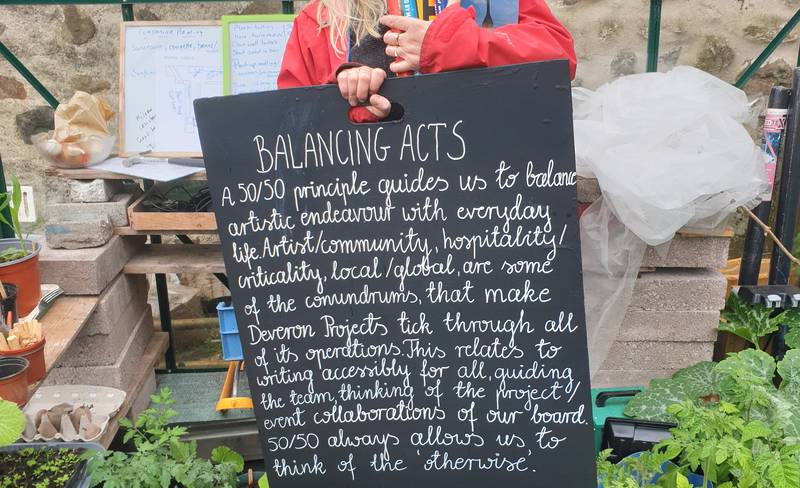 BALANCING ACTS
A 50/50 principle guides us to balance
artistic endeavour with everyday
life. Artist/community, hospitality/
criticality, local/global, are some
of the conundrums, that make
Deveron Projects tick through all
of its operations. This relates to
writing accessibly for all, guiding
the team, thinking of the project/
event collaborations of our board.
50/50 always allows us to
think of the 'otherwise'.